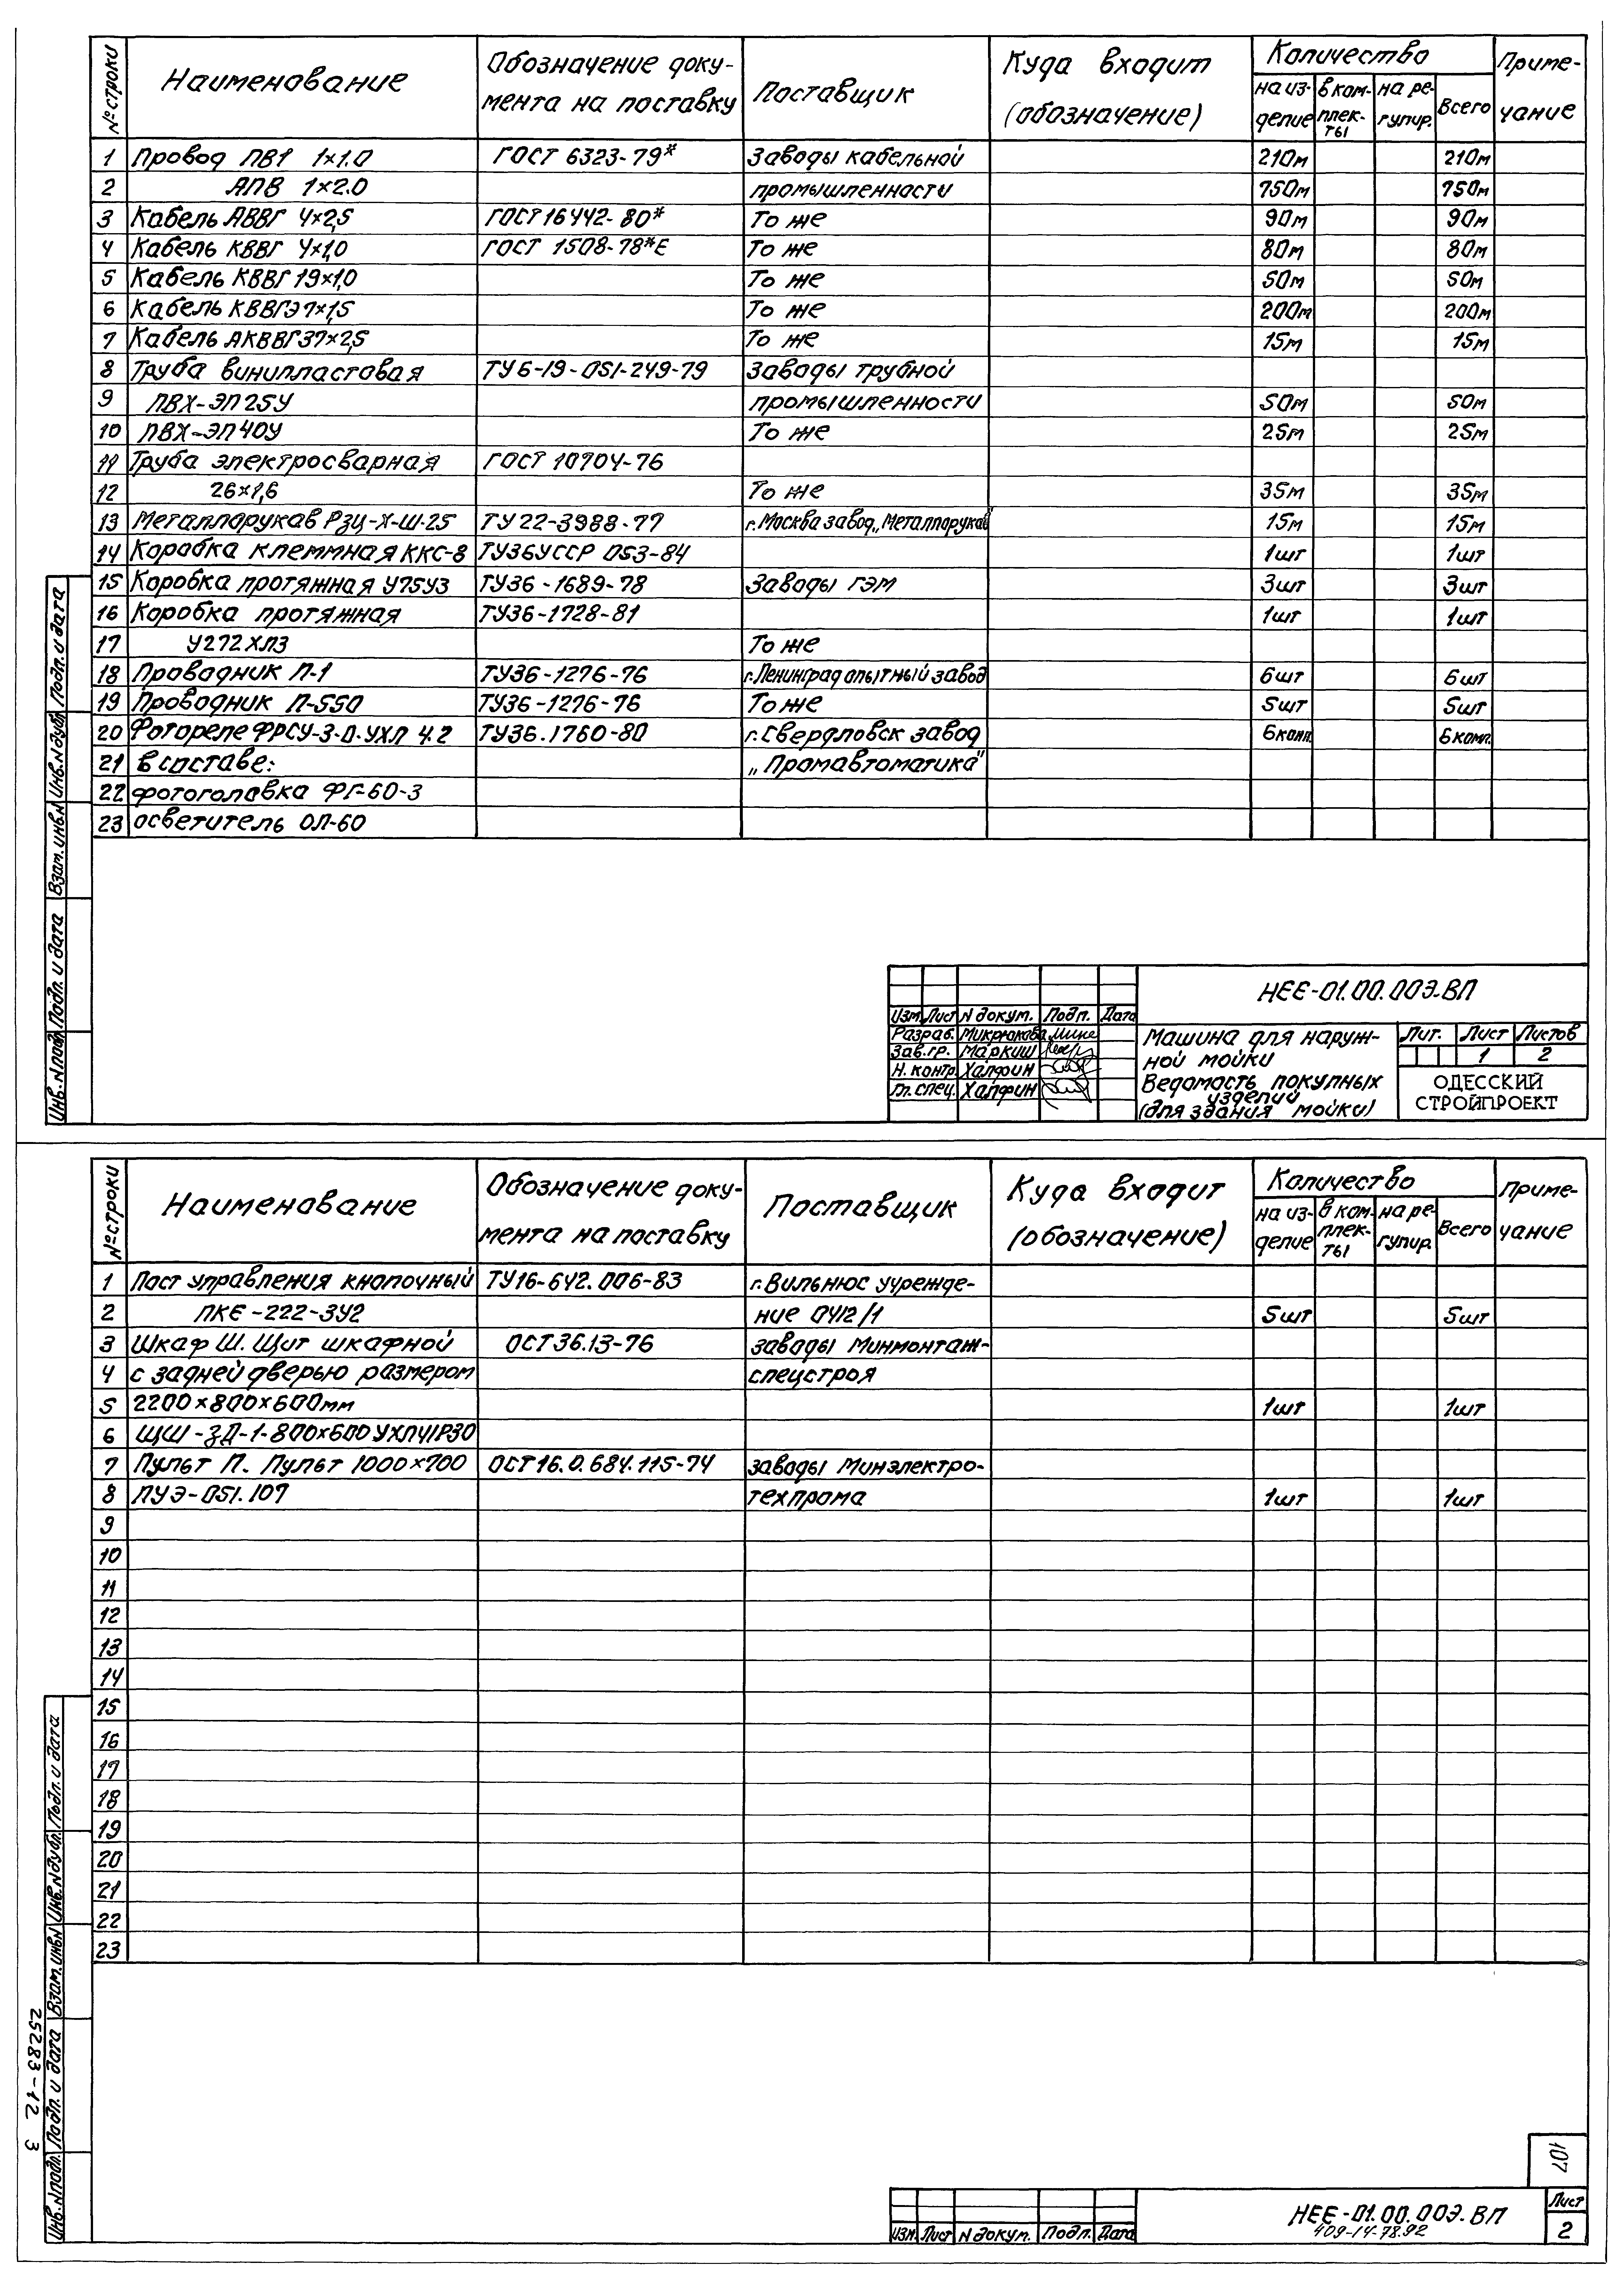 № строки | Наименование | Обозначение доку-мента на поставку | Поставщик | Куда входит (обозначение) | Количество | на из-делие | в ком-плек-ты | на ре-гулир. | Всего | Приме-чание
1 Провод ПВ1 1×1.0 ГОСТ 6323-79* Заводы кабельной 210м 210м
2 АПВ 1×2.0 промышленности 750м 750м
3 Кабель АВВГ 4×2,5 ГОСТ 16442-80* То же 90м 90м
4 Кабель КВВГ 4×1,0 ГОСТ 1508-78*Е То же 80м 80м
5 Кабель КВВГ 19×1,0 То же 50м 50м
6 Кабель КВВГЭ 7×1,5 То же 200м 200м
7 Кабель АКВВГ 37×2,5 То же 15м 15м
8 Труба винипластовая ТУ6-19-051-249-79 Заводы трубной
9 ПВХ-ЭП 25У промышленности 50м 50м
10 ПВХ-ЭП 40У То же 25м 25м
11 Труба электросварная ГОСТ 10704-76
12 26×1,6 То же 35м 35м
13 Металлорукав РЗЦ-Х-Ш-25 ТУ 22-3988-77 г. Москва завод „Металлорукав" 15м 15м
14 Коробка клеммная ККС-8 ТУ36УССР 053-84 1шт 1шт
15 Коробка протяжная У75У3 ТУ36-1689-78 Заводы ГЭМ 3шт 3шт
16 Коробка протяжная ТУ36-1728-81 1шт 1шт
17 У272ХЛ3 То же
18 Проводник П-1 ТУ36-1276-76 г. Ленинград опытный завод 6шт 6шт
19 Проводник П-550 ТУ36-1276-76 То же 5шт 5шт
20 Фотореле ФРСУ-3-0-УХЛ 4.2 ТУ36.1760-80 г. Свердловск завод 6комп. 6комп.
21 в составе: „Промавтоматика"
22 фотоголовка ФГ-60-3
23 осветитель ОЛ-60
Инв.N подл. Подп. и дата Взам. инв.N Инв.N дубл. Подп. и дата
НЕЕ-01.00.00Э.ВП
Изм. Лист N докум. Подп. Дата
Разраб. Микрюкова
Зав.гр. Маркиш
Н. контр. Халфин
Гл. спец. Халфин
Машина для наруж-
ной мойки
Ведомость покупных
изделий
(для здания мойки)
Лит. Лист Листов
1 2
ОДЕССКИЙ
СТРОЙПРОЕКТ
№ строки | Наименование | Обозначение доку-мента на поставку | Поставщик | Куда входит (обозначение) | Количество | на из-делие | в ком-плек-ты | на ре-гулир. | Всего | Приме-чание
1 Пост управления кнопочный ТУ16-642.006-83 г. Вильнюс учрежде-
2 ПКЕ-222-3У2 ние ОЧ12/1 5шт 5шт
3 Шкаф Ш. Щит шкафной ОСТ 36.13-76 заводы Минмонтаж-
4 с задней дверью размером спецстроя
5 2200×800×600мм 1шт 1шт
6 ЩШ-ЗД-1-800×600 УХЛ4 IP30
7 Пульт П. Пульт 1000×700 ОСТ16.0.684.115-74 заводы Минэлектро-
8 ПУЭ-051.107 техпрома 1шт 1шт
9
10
11
12
13
14
15
16
17
18
19
20
21
22
23
Инв.N подл. Подп. и дата Взам. инв.N Инв.N дубл. Подп. и дата
25283-12 3
107
Изм. Лист N докум. Подп. Дата
НЕЕ-01.00.00Э.ВП
409-14-78.92
Лист
2